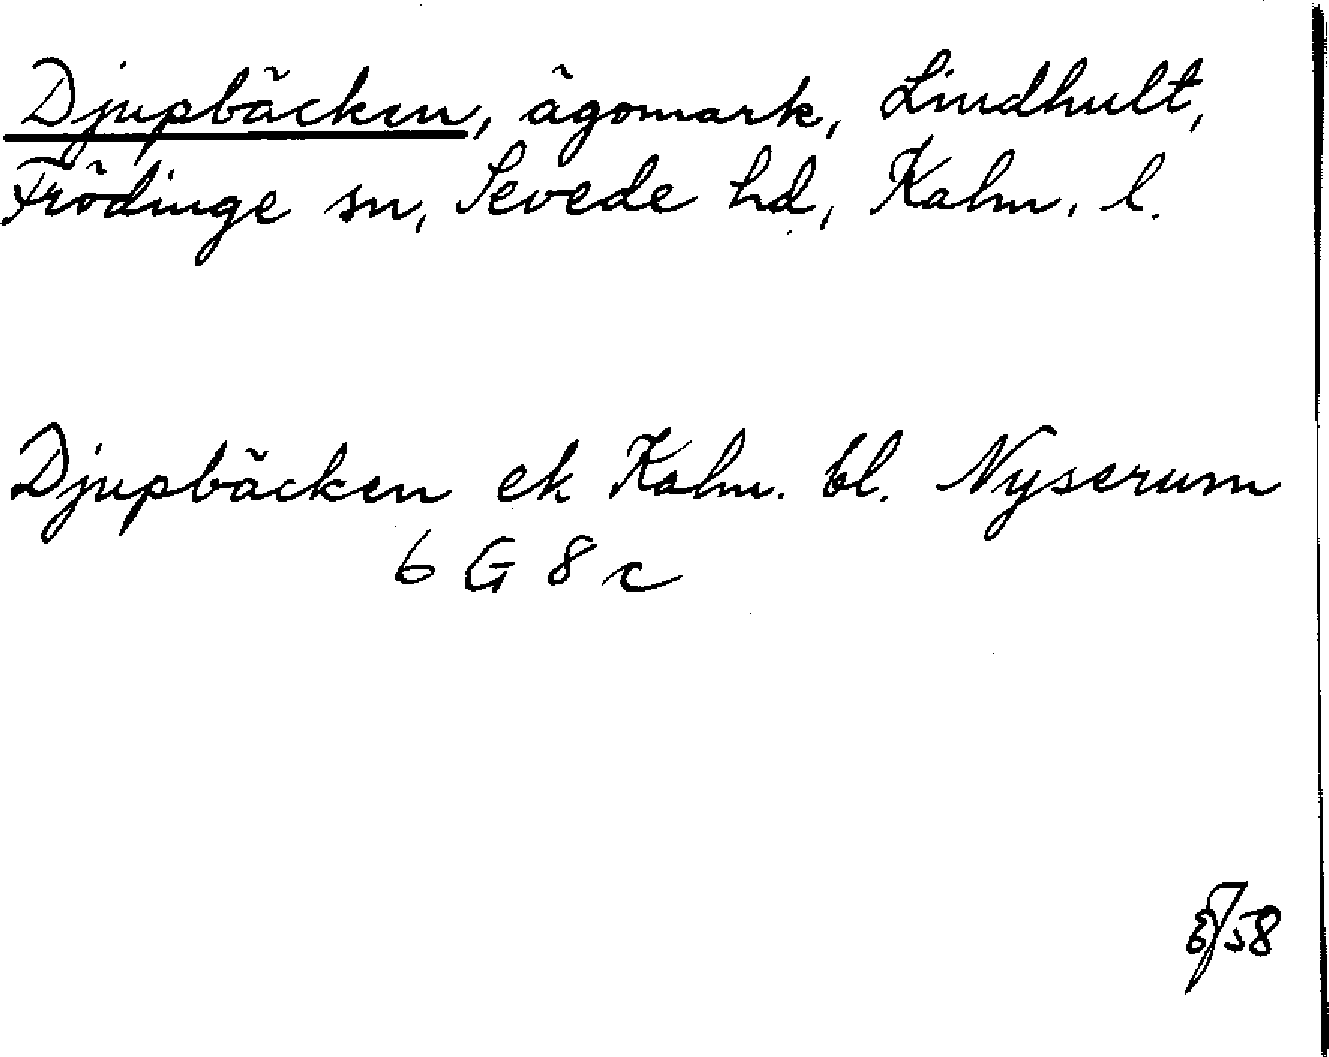 Djupbäcken, ägomark, Lindhult,
Frödinge sn, Sevede hd, Kalm. l.
Djupbäcken ek Kalm. bl. Nyserum
6 G 8 c